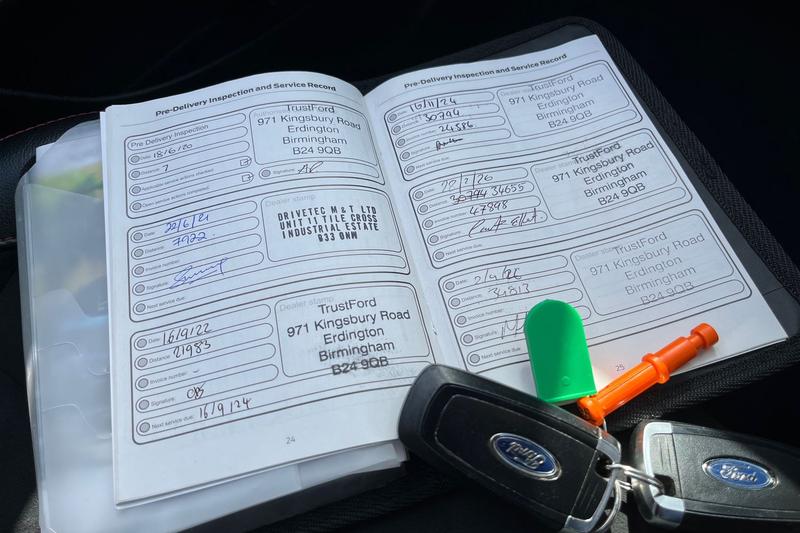 Pre-Delivery Inspection and Service Record
Pre Delivery Inspection
Date: 18/6/20
Distance: 7
Applicable service actions checked
Open service actions completed
TrustFord
971 Kingsbury Road
Erdington
Birmingham
B24 9QB
Signature:
Date: 22/6/21
Distance: 7922
Invoice number:
Signature:
Next service due:
Dealer stamp
DRIVETEC M & T LTD
UNIT 11 TILE CROSS
INDUSTRIAL ESTATE
B33 0NW
Date: 16/9/22
Distance: 21983
Invoice number: -
Signature:
Next service due: 16/9/24
Dealer stamp
TrustFord
971 Kingsbury Road
Erdington
Birmingham
B24 9QB
24
Pre-Delivery Inspection and Service Record
16/11/24
30794
Invoice number: 24586
Signature:
Next service due:
TrustFord
971 Kingsbury Road
Erdington
Birmingham
B24 9QB
Date:
Distance: 34655
Invoice number: 47898
Signature:
Next service due:
Dealer stamp
TrustFord
971 Kingsbury Road
Erdington
Birmingham
B24 9QB
Date:
Distance: 34813
Invoice number:
Signature:
Next service due:
TrustFord
971 Kingsbury Road
Erdington
Birmingham
B24 9QB
25
Ford
Ford